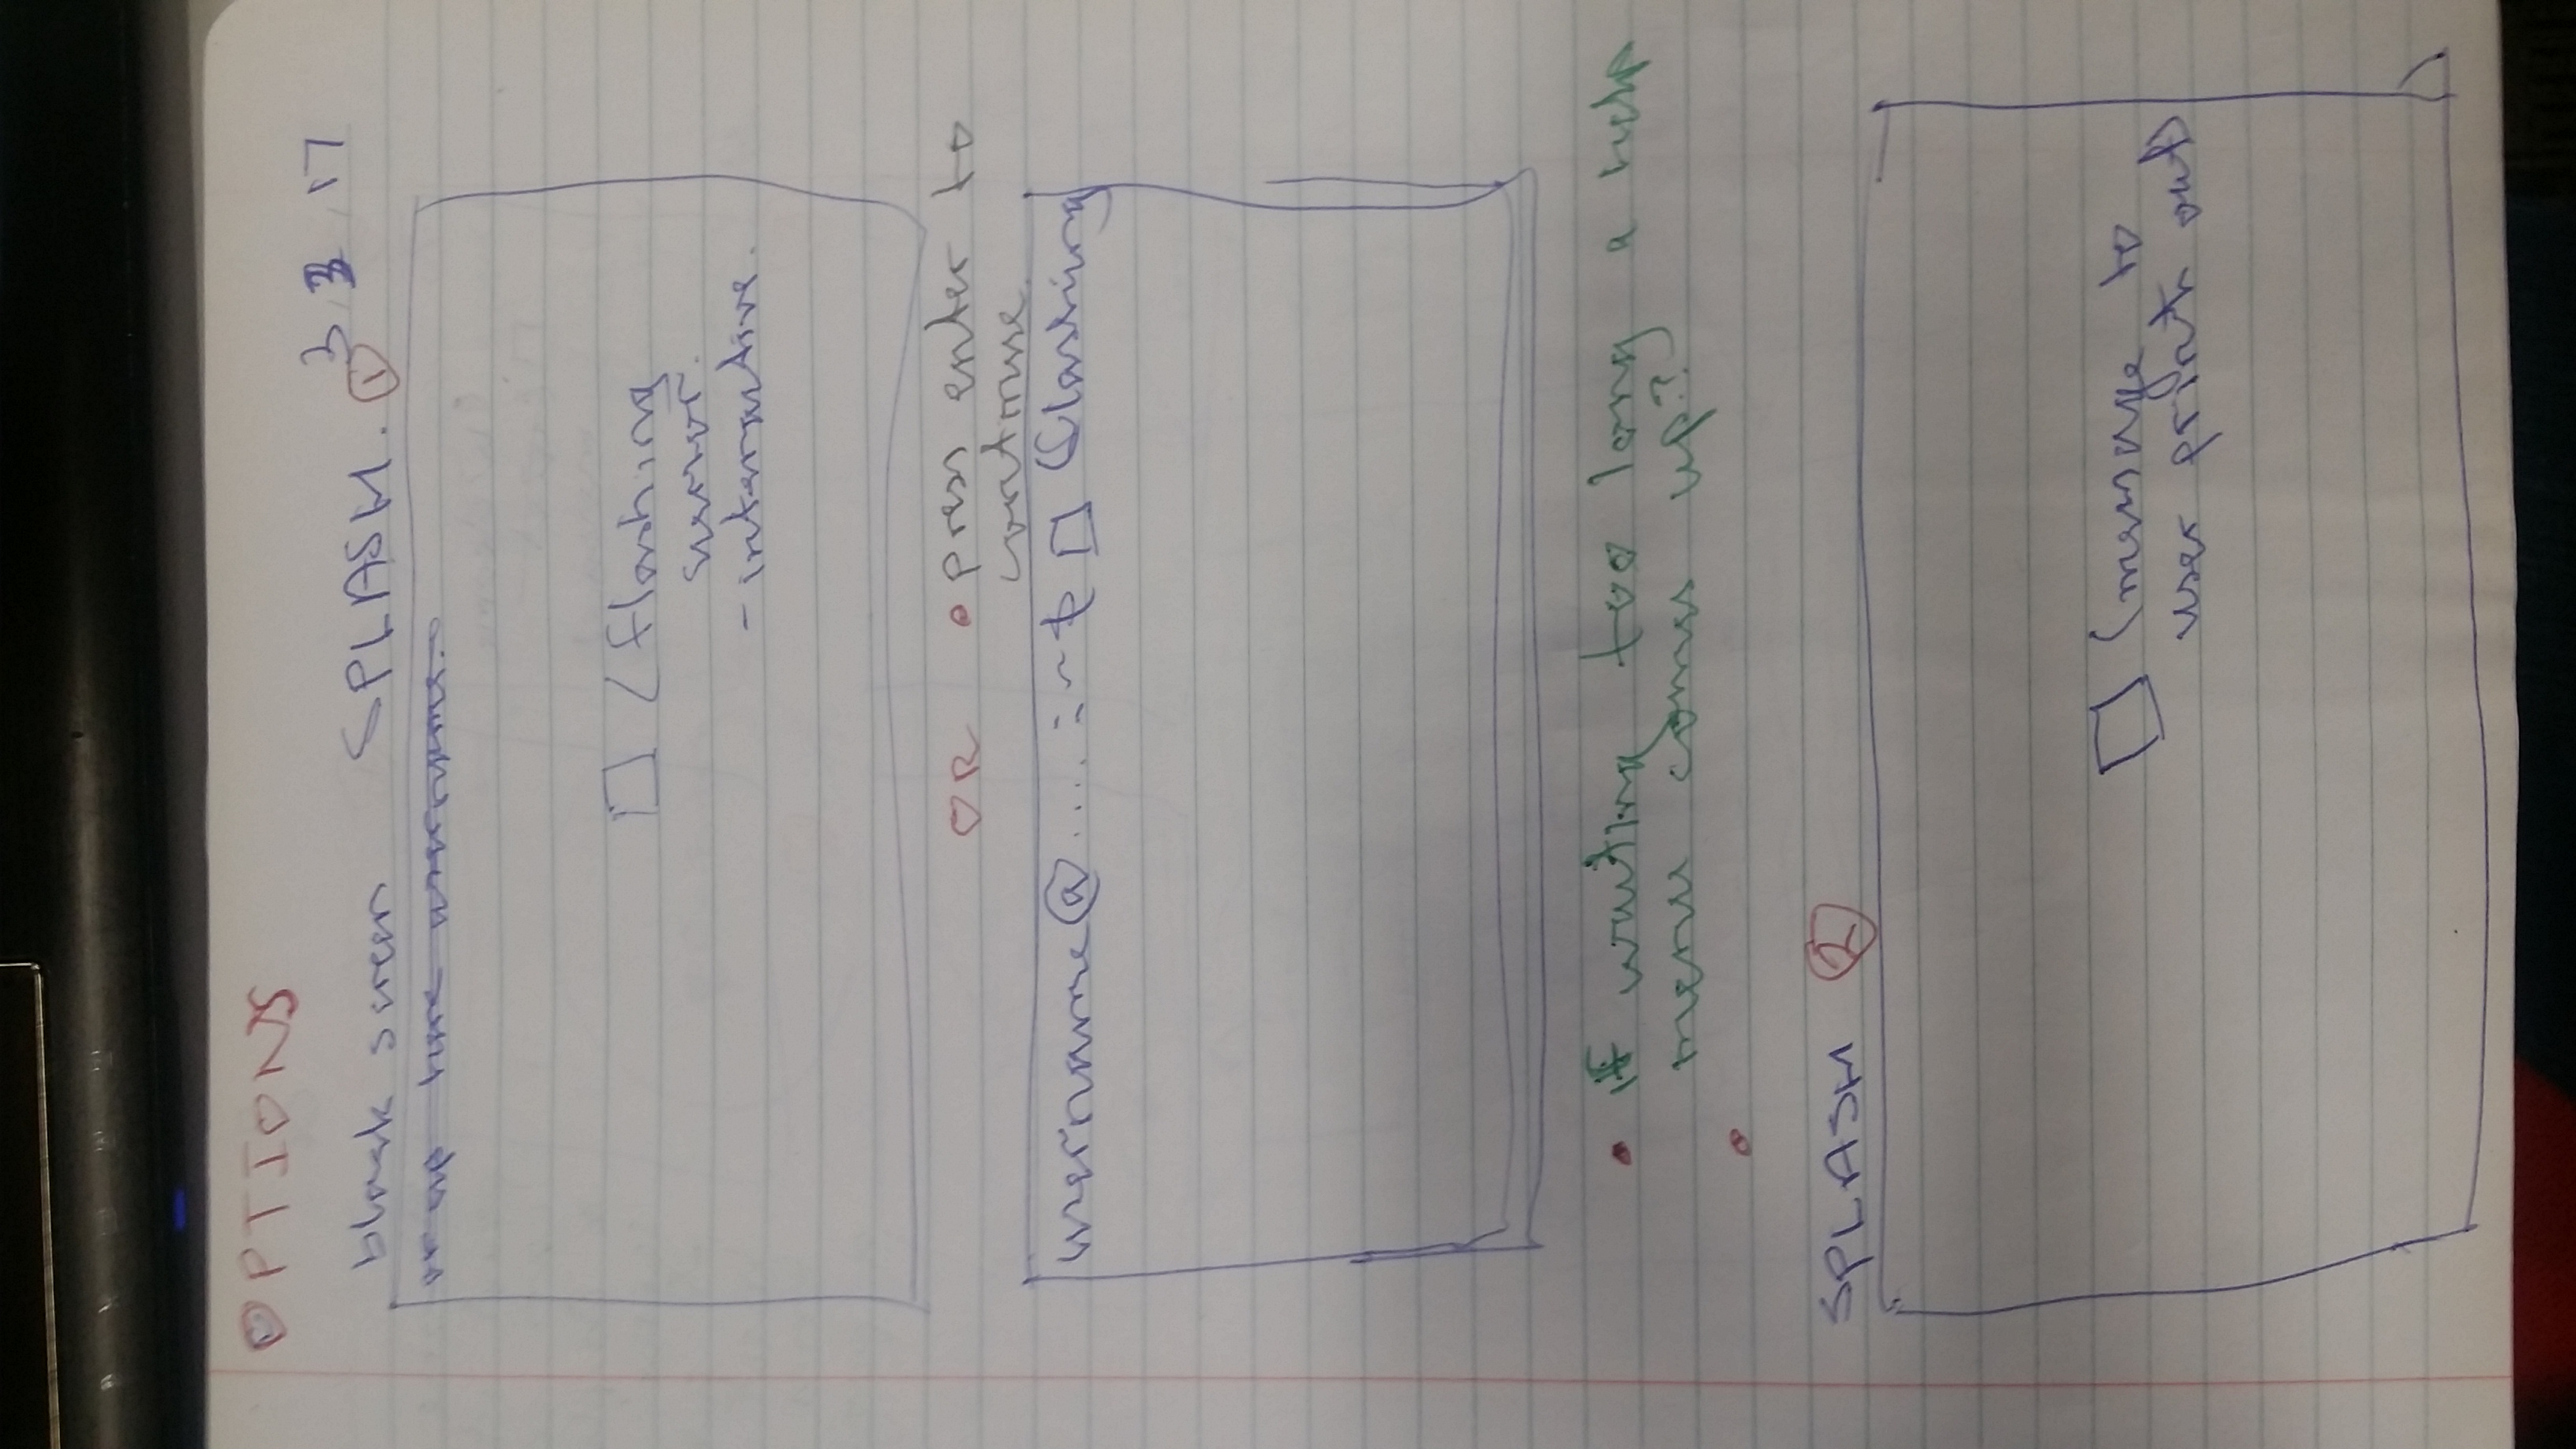 OPTIONS
3 3 17
black screen SPLASH. ①
or up here username.
(flashing
cursor.
- interactive.
OR • press enter to
continue.
username@....:~$ (flashing
• if waiting too long a help
menu comes up?
•
SPLASH ②
(message to
user prints out)